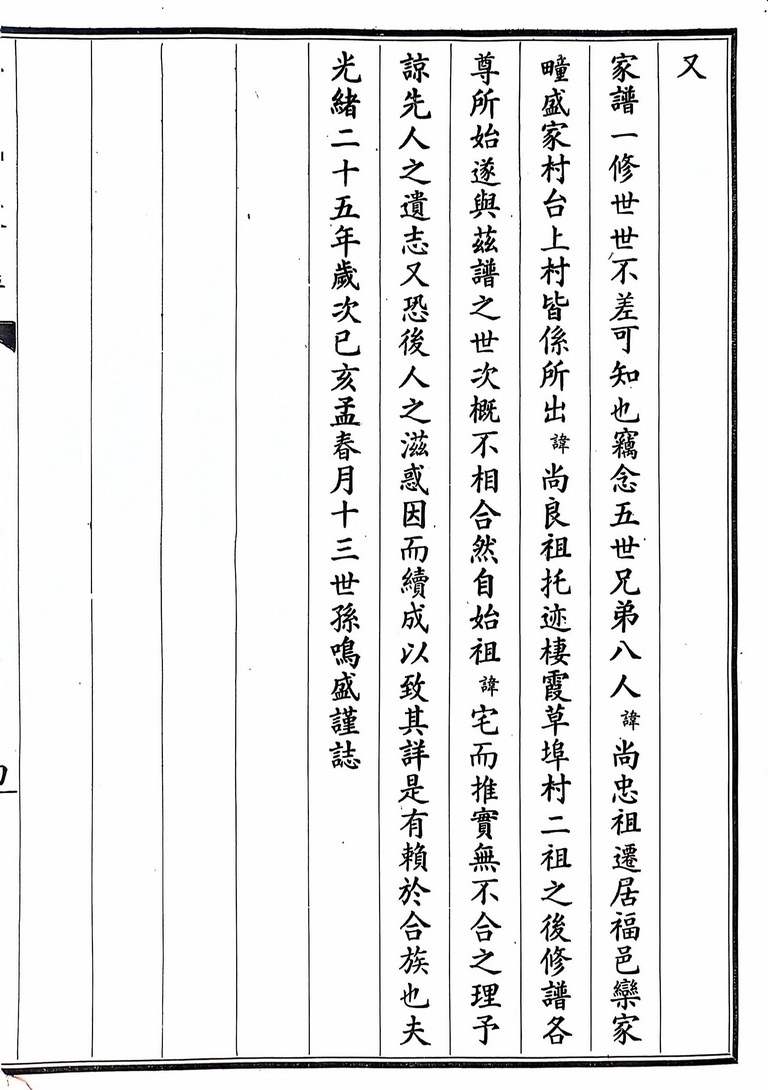 又
家譜一修世世不差可知也竊念五世兄弟八人諱尚忠祖遷居福邑欒家
疃盛家村台上村皆係所出諱尚良祖托迹棲霞草埠村二祖之後修譜各
尊所始遂與茲譜之世次概不相合然自始祖諱宅而推實無不合之理予
諒先人之遺志又恐後人之滋惑因而續成以致其詳是有賴於合族也夫
光緒二十五年歲次已亥孟春月十三世孫鳴盛謹誌